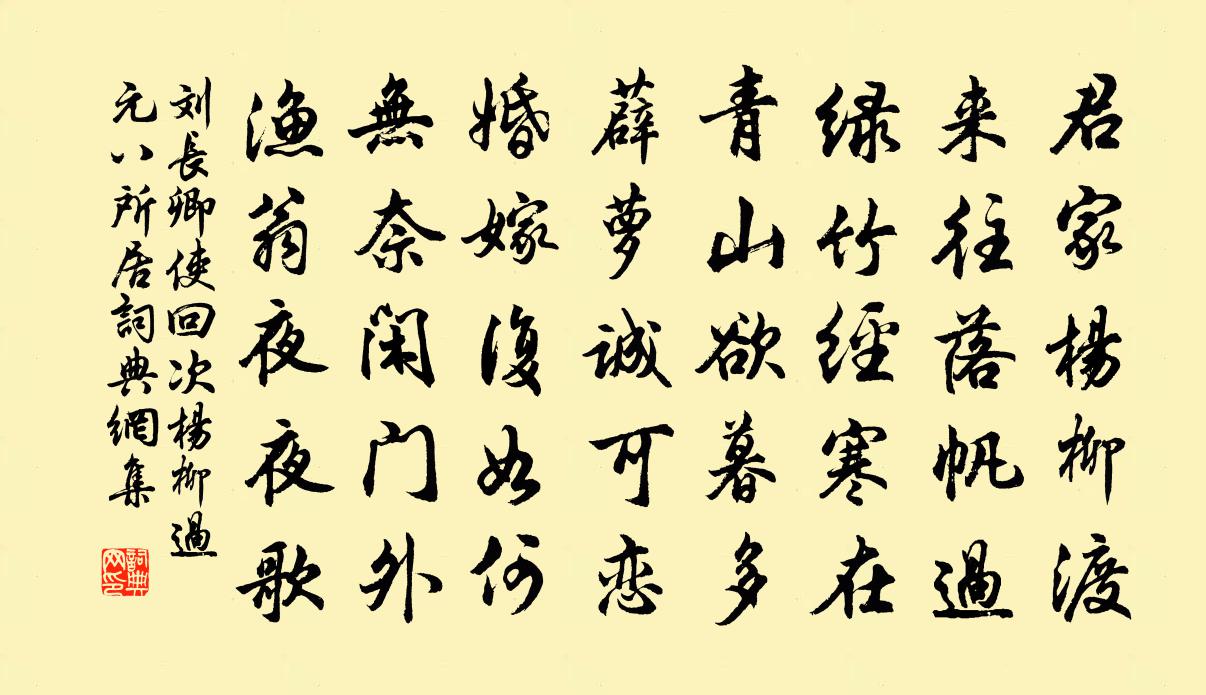 君家楊柳渡
来往落帆過
绿竹經寒在
青山欲暮多
薜萝誠可恋
婚嫁復如何
無奈閑门外
漁翁夜夜歌
刘長卿使回次楊柳過
元八所居詞典網集
詞典网印